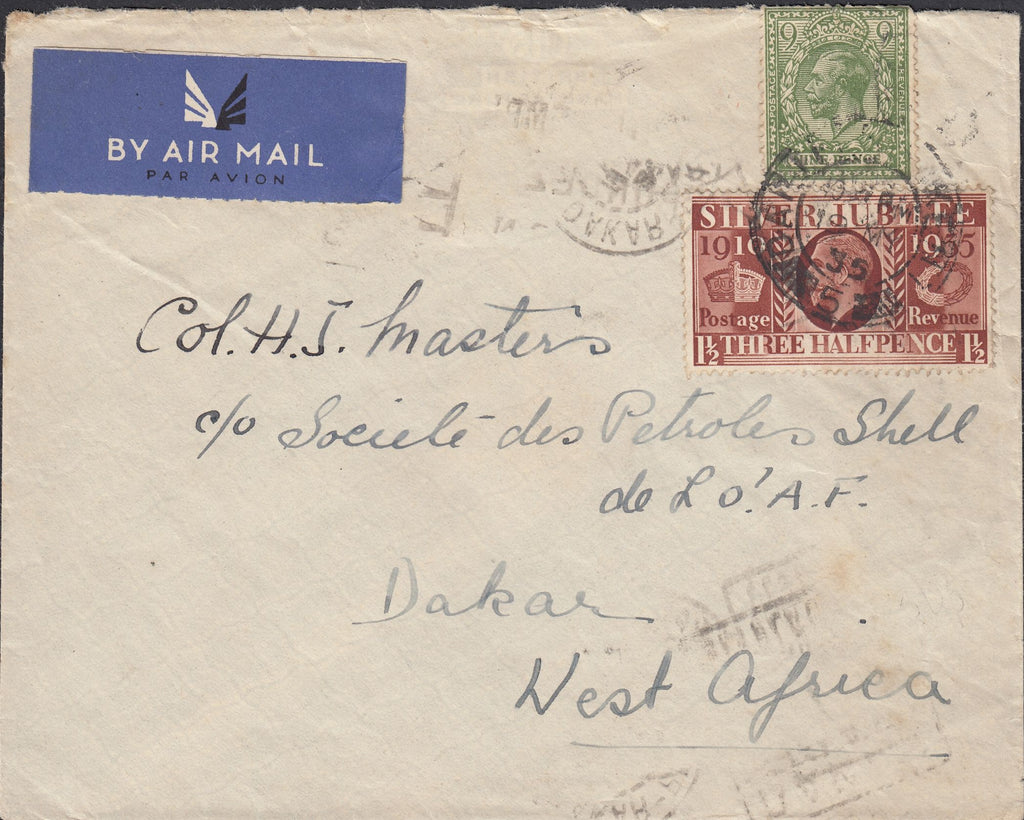 BY AIR MAIL
PAR AVION
9 9
POSTAGE REVENUE
NINE PENCE
SILVER JUBILEE
1910 1935
Postage Revenue
1½ THREE HALFPENCE 1½
35
Col. H. J. Masters
c/o Societé des Petroles Shell
de L O'. A. F.
Dakar
West Africa